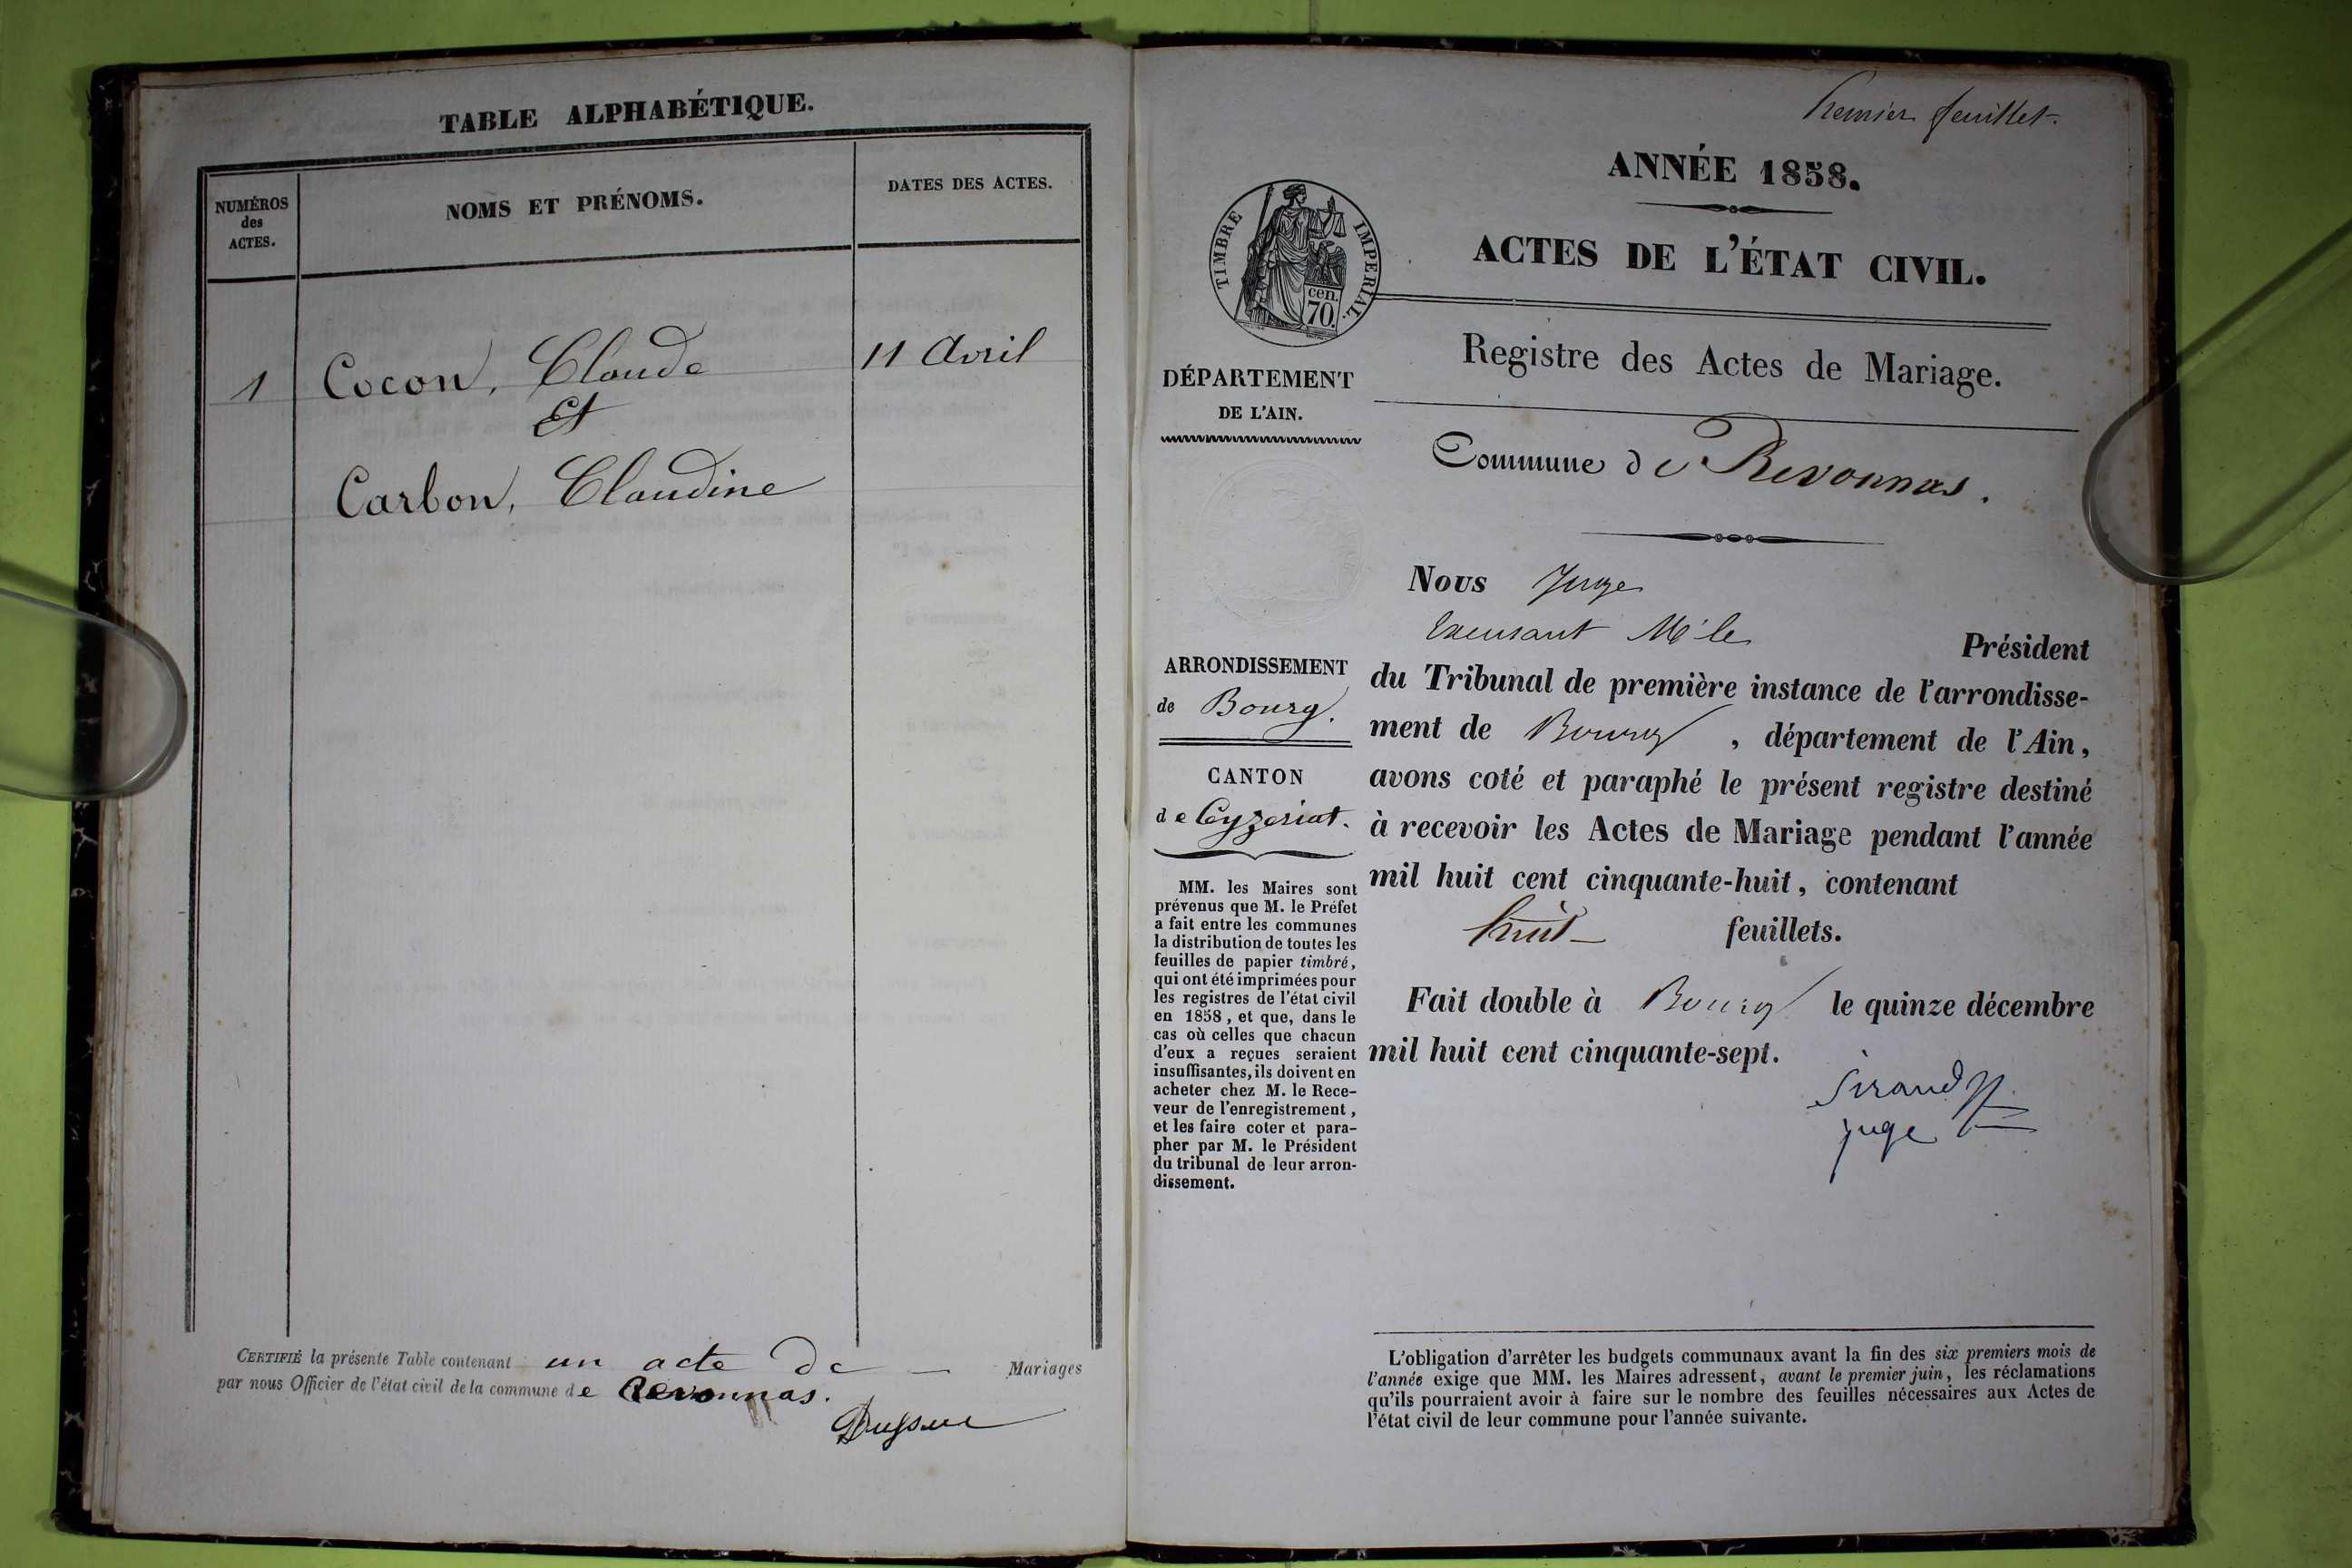 TABLE ALPHABÉTIQUE.
NUMÉROS
des
ACTES.
NOMS ET PRÉNOMS.
DATES DES ACTES.
1 Cocon, Claude 11 Avril
Et
Carbon, Claudine
CERTIFIÉ la présente Table contenant un acte de — Mariages
par nous Officier de l'état civil de la commune de Revonnas.
Premier feuillet.
ANNÉE 1858.
ACTES DE L'ÉTAT CIVIL.
TIMBRE IMPERIAL.
cen.
70.
Registre des Actes de Mariage.
DÉPARTEMENT
DE L'AIN.
Commune de Revonnas.
ARRONDISSEMENT
de Bourg.
CANTON
de Ceyzeriat.
MM. les Maires sont
prévenus que M. le Préfet
a fait entre les communes
la distribution de toutes les
feuilles de papier timbré,
qui ont été imprimées pour
les registres de l'état civil
en 1858, et que, dans le
cas où celles que chacun
d'eux a reçues seraient
insuffisantes, ils doivent en
acheter chez M. le Rece-
veur de l'enregistrement,
et les faire coter et para-
pher par M. le Président
du tribunal de leur arron-
dissement.
Nous Juge
M. le Président
du Tribunal de première instance de l'arrondisse-
ment de Bourg, département de l'Ain,
avons coté et paraphé le présent registre destiné
à recevoir les Actes de Mariage pendant l'année
mil huit cent cinquante-huit, contenant
huit feuillets.
Fait double à Bourg le quinze décembre
mil huit cent cinquante-sept.
Sirand
juge
L'obligation d'arrêter les budgets communaux avant la fin des six premiers mois de
l'année exige que MM. les Maires adressent, avant le premier juin, les réclamations
qu'ils pourraient avoir à faire sur le nombre des feuilles nécessaires aux Actes de
l'état civil de leur commune pour l'année suivante.